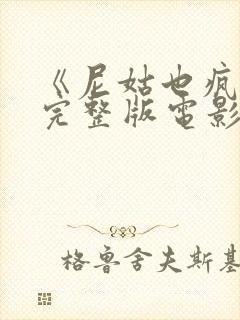 《尼姑也疯
完整版电影
格鲁舍夫斯基